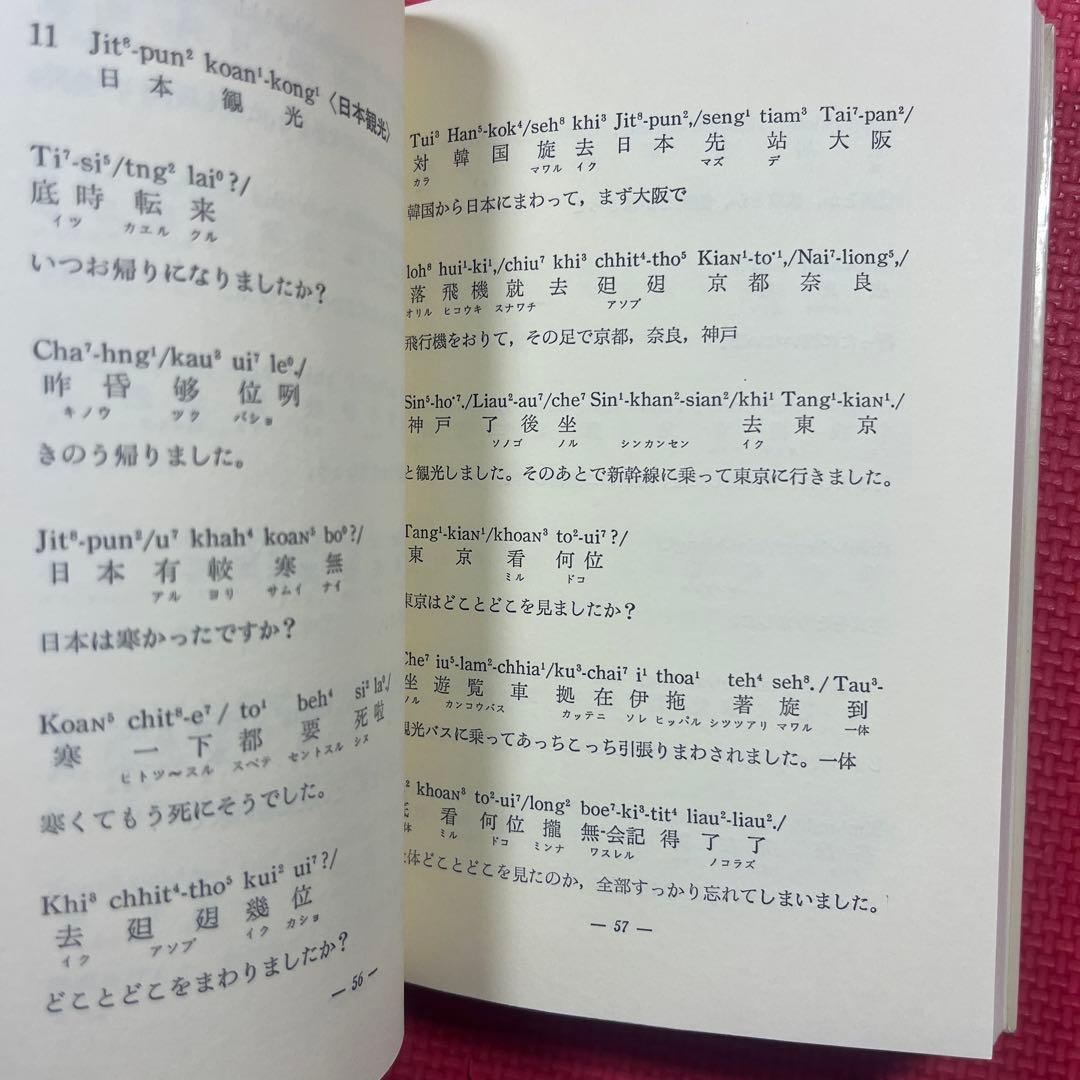 11 Jit⁸-pun² koan¹-kong¹〈日本観光〉
日本観光
Ti⁷-si⁵/tng² lai⁰?/
底時転来
イツ カエル クル
いつお帰りになりましたか？
Cha⁷-hng¹/kau³ ui⁷ le⁰./
昨昏够位咧
キノウ ツク バショ
きのう帰りました。
Jit⁸-pun²/u⁷ khah⁴ koaɴ⁵ bo⁰?/
日本有較寒無
アル ヨリ サムイ ナイ
日本は寒かったですか？
Koaɴ⁵ chit⁸-e⁷/to¹ beh⁴ si² la⁰./
寒一下都要死啦
ヒトツ〜スル スベテ セントスル シヌ
寒くてもう死にそうでした。
Khi³ chhit⁴-tho⁵ kui² ui⁷?/
去𨑨迌幾位
イク アソブ イク カショ
どことどこをまわりましたか？
— 56 —
Tui³ Han⁵-kok⁴/seh⁸ khi³ Jit⁸-pun²,/seng¹ tiam³ Tai⁷-pan²/
対韓国旋去日本先站大阪
カラ マワル イク マズ デ
韓国から日本にまわって，まず大阪で
loh⁸ hui¹-ki¹,/chiu⁷ khi³ chhit⁴-tho⁵ Kiaɴ¹-to·¹,/Nai⁷-liong⁵,/
落飛機就去𨑨迌京都奈良
オリル ヒコウキ スナワチ アソブ
飛行機をおりて，その足で京都，奈良，神戸
Sin⁵-ho·⁷./Liau²-au⁷/che⁷ Sin¹-khan²-sian²/khi¹ Tang¹-kiaɴ¹./
神戸了後坐去東京
ソノゴ ノル シンカンセン イク
と観光しました。そのあとで新幹線に乗って東京に行きました。
Tang¹-kiaɴ¹/khoaɴ³ to²-ui⁷?/
東京看何位
ミル ドコ
東京はどことどこを見ましたか？
Che⁷ iu⁵-lam²-chhia¹/ku³-chai⁷ i¹ thoa¹ teh⁴ seh⁸./Tau³-
坐遊覧車拠在伊拖著旋到
ノル カンコウバス カッテニ ソレ ヒッパル シツツアリ マワル 一体
観光バスに乗ってあっちこっち引張りまわされました。一体
khoaɴ³ to²-ui⁷/long² boe⁷-ki³-tit⁴ liau²-liau²./
看何位攏無-会記得了了
ミル ドコ ミンナ ワスレル ノコラズ
体どことどこを見たのか，全部すっかり忘れてしまいました。
— 57 —